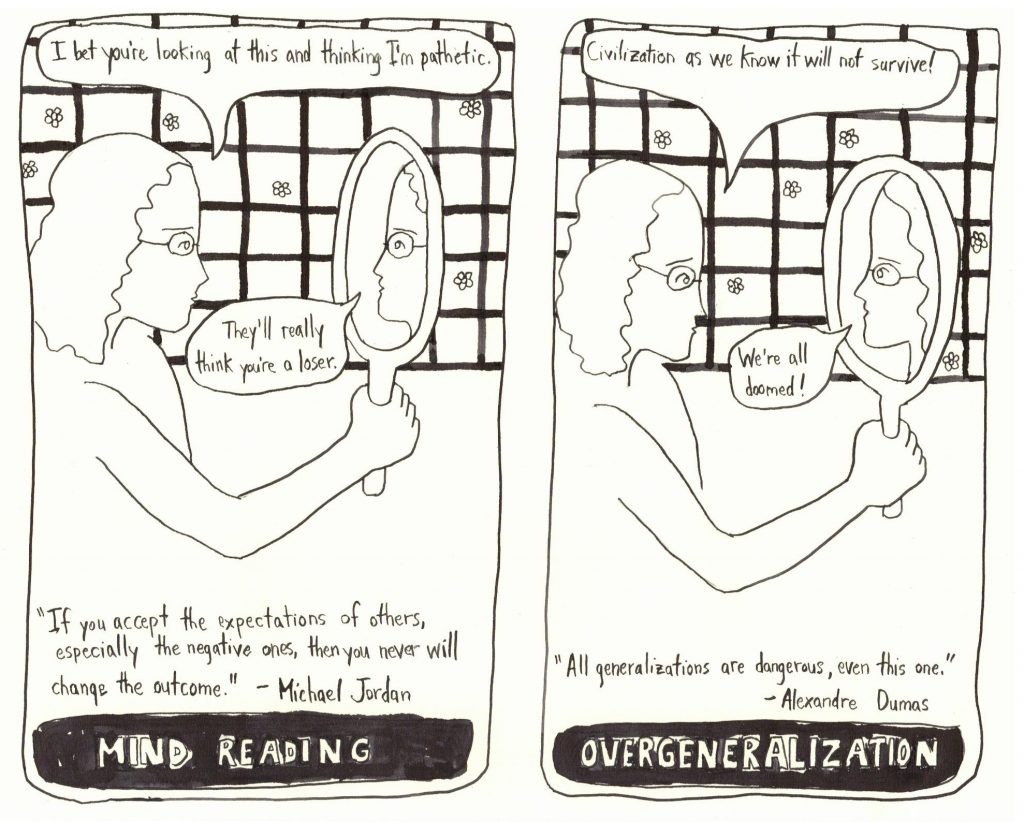 I bet you're looking at this and thinking I'm pathetic.
They'll really
think you're a loser.
"If you accept the expectations of others,
especially the negative ones, then you never will
change the outcome." - Michael Jordan
MIND READING
Civilization as we know it will not survive!
We're all
doomed!
"All generalizations are dangerous, even this one."
- Alexandre Dumas
OVERGENERALIZATION